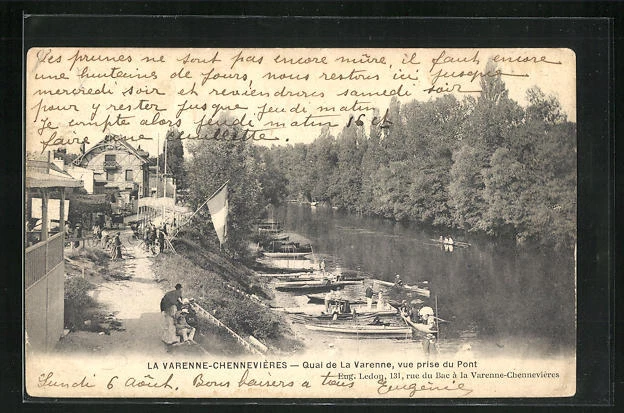 Les prunes ne sont pas encore mûre, il faut encore
une huitaine de jours, nous restons ici jusque
mercredi soir et reviendrons samedi soir
pour y rester jusque jeudi matin
Je compte alors jeudi matin 16 et
faire une
LA VARENNE-CHENNEVIÈRES — Quai de La Varenne, vue prise du Pont
Eug. Ledon, 131, rue du Bac à la Varenne-Chennevières
Lundi 6 Août. Bons baisers a tous Eugénie